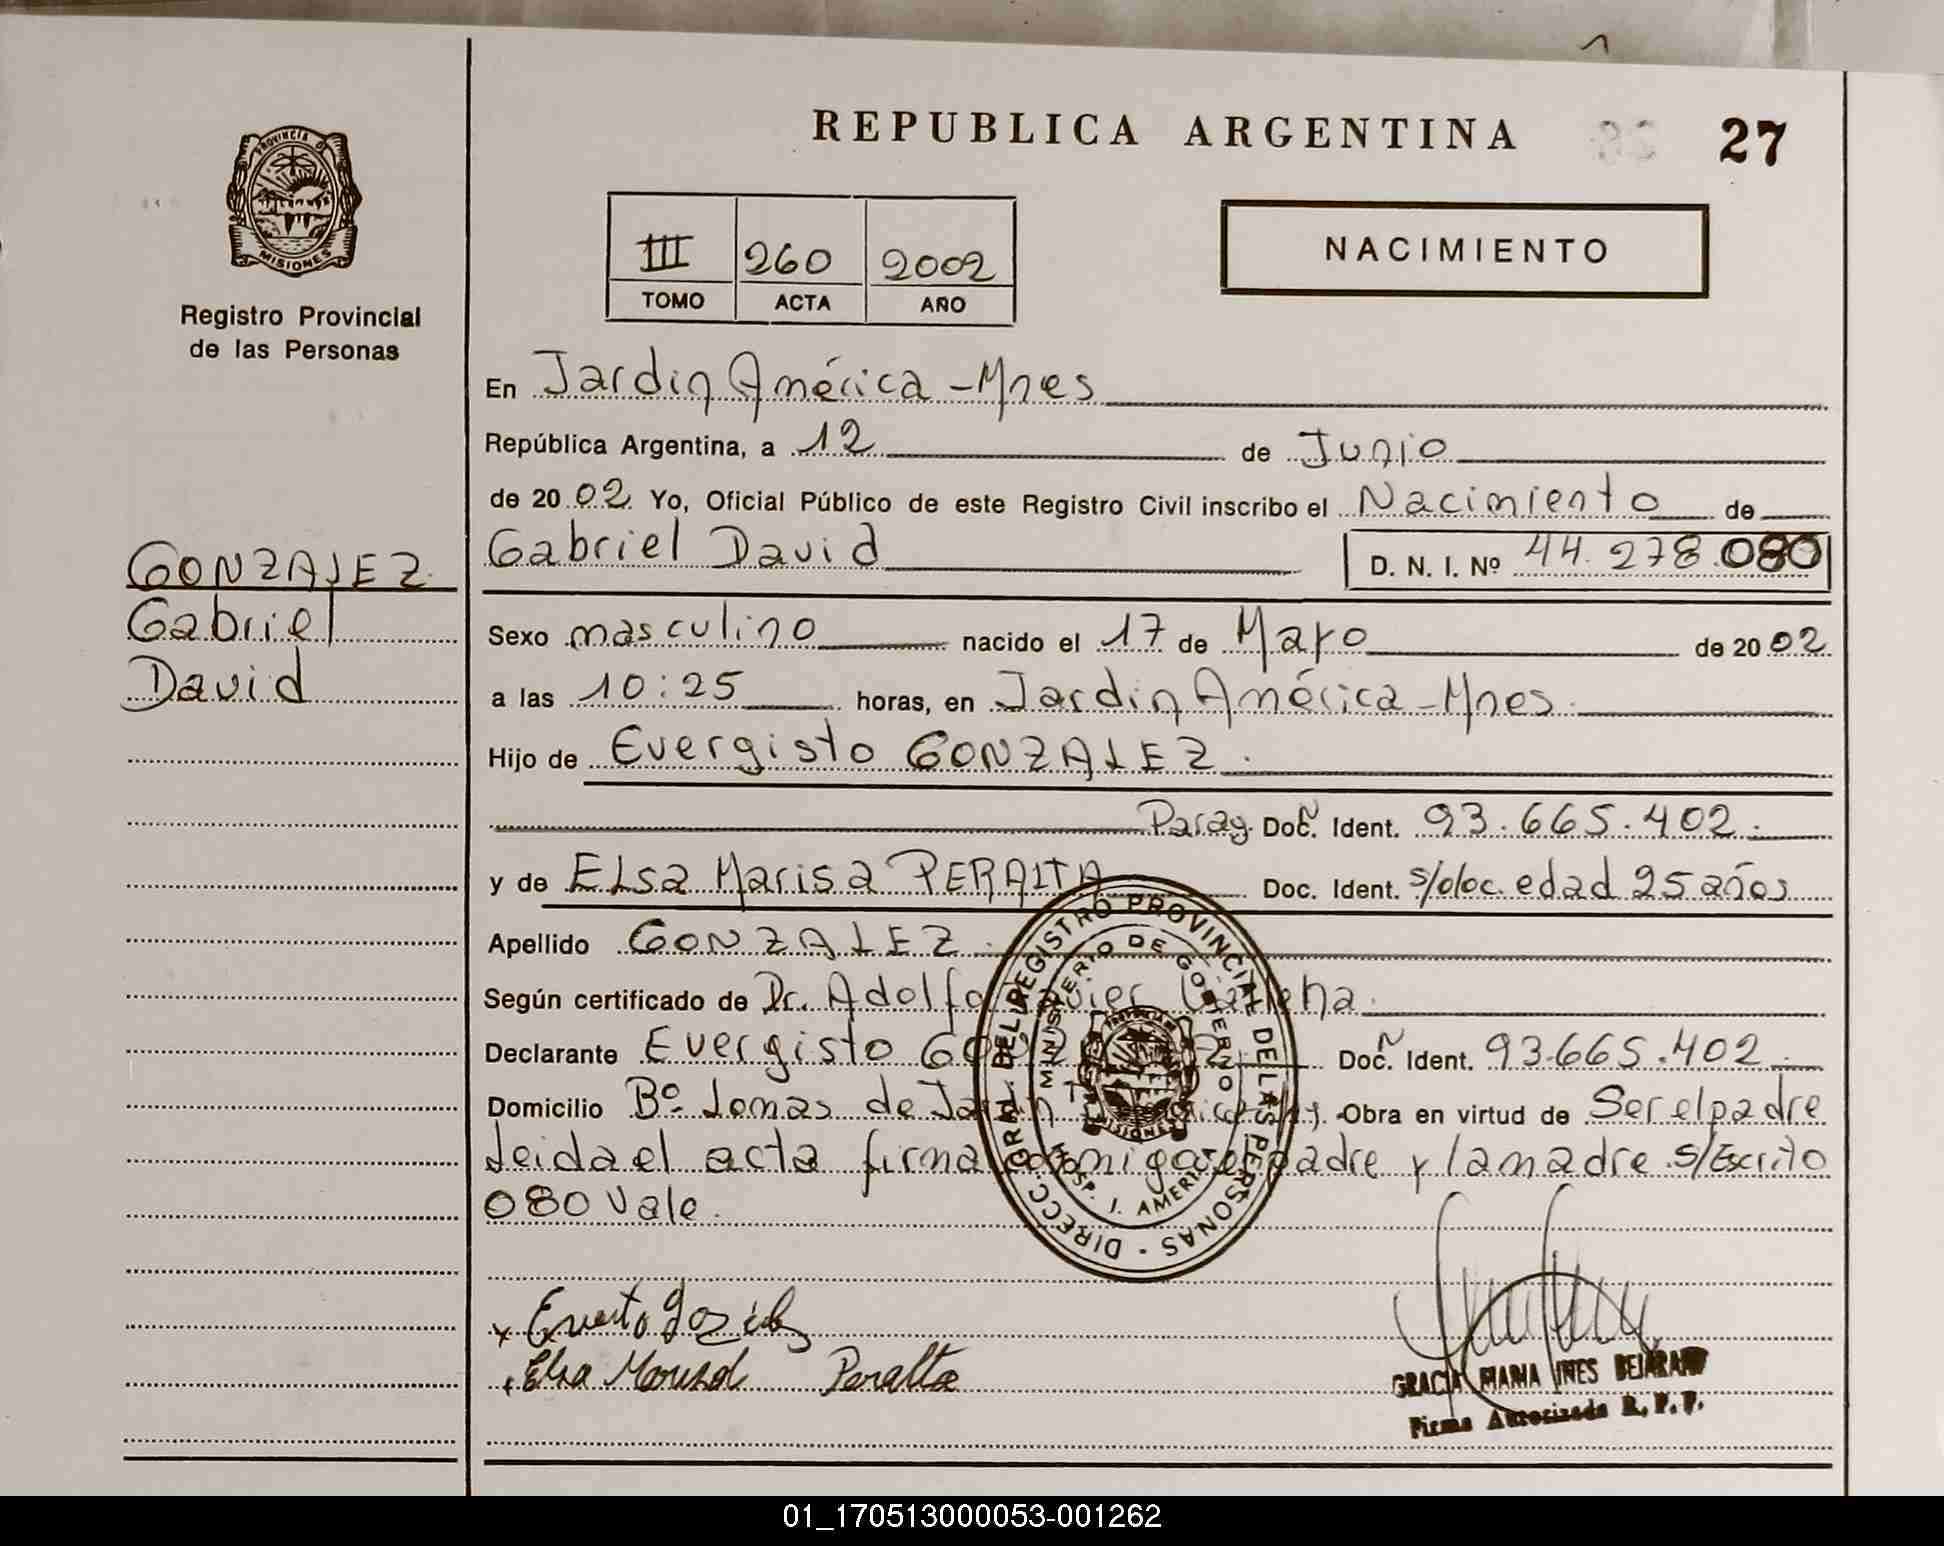 REPUBLICA ARGENTINA
27
PROVINCIA D
MISIONES
Registro Provincial
de las Personas
III 260 2002
TOMO ACTA AÑO
NACIMIENTO
En Jardin América - Mnes
República Argentina, a 12 de Junio
de 2002 Yo, Oficial Público de este Registro Civil inscribo el Nacimiento de
Gabriel David D. N. I. Nº 44.278.080
GONZALEZ
Gabriel
David
Sexo masculino nacido el 17 de Mayo de 2002
a las 10:25 horas, en Jardin América - Mnes.
Hijo de Evergisto GONZALEZ.
Parag. Doc. Ident. 93.665.402.
y de ELsa Marisa PERALTA Doc. Ident. s/doc. edad 25 años
Apellido GONZALEZ.
Según certificado de Dr. Adolfo
Declarante Evergisto Doc. Ident. 93.665.402.
Domicilio Bº Lomas de Jardin Obra en virtud de Ser el padre
Leida el acta firma conmigo el padre y la madre. S/Escrito
080 Vale.
DIRECC. GRAL. DEL REGISTRO PROVINCIAL DE LAS PERSONAS
MINISTERIO DE GOBIERNO
HOSP. J. AMERICA
MISIONES
Elsa Peralta
GRACIA MARIA INES BEJARANO
Firma Autorizada R. P. P.
01_170513000053-001262